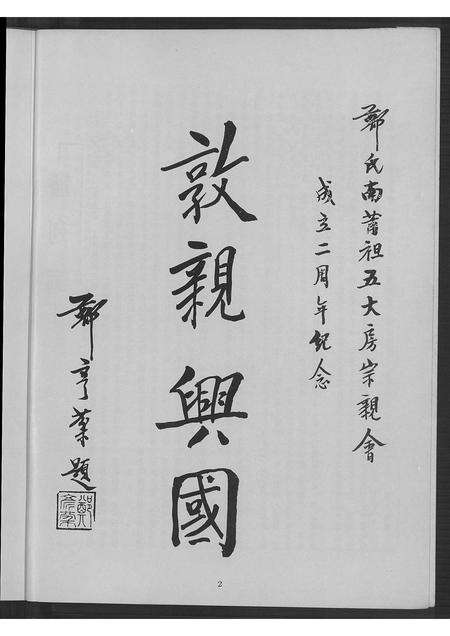 鄭氏南莆祖五大房宗親會
成立二周年紀念
敦親興國
鄭亨業題
2